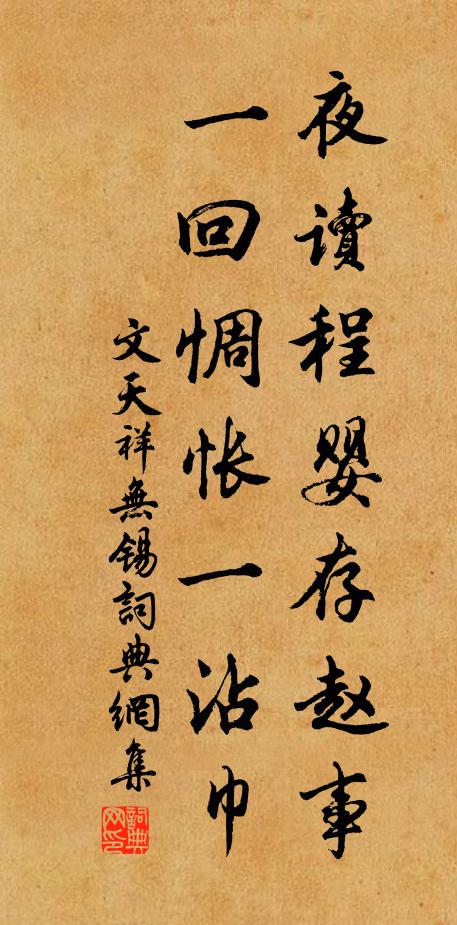 夜讀程嬰存赵事
一回惆怅一沾巾
文天祥無锡詞典網集
詞典网印